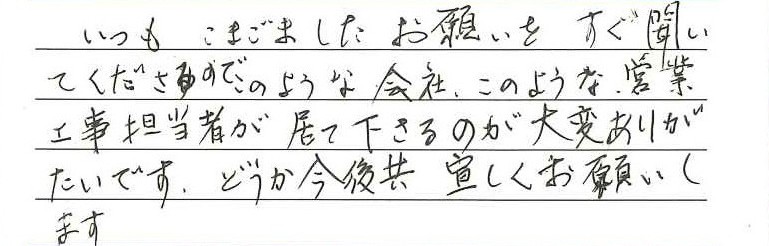 いつも こまごました お願いを すぐ聞い
てくださるのでこのような会社、このような営業
工事担当者が居て下さるのが大変ありが
たいです。どうか今後共 宜しくお願いし
ます